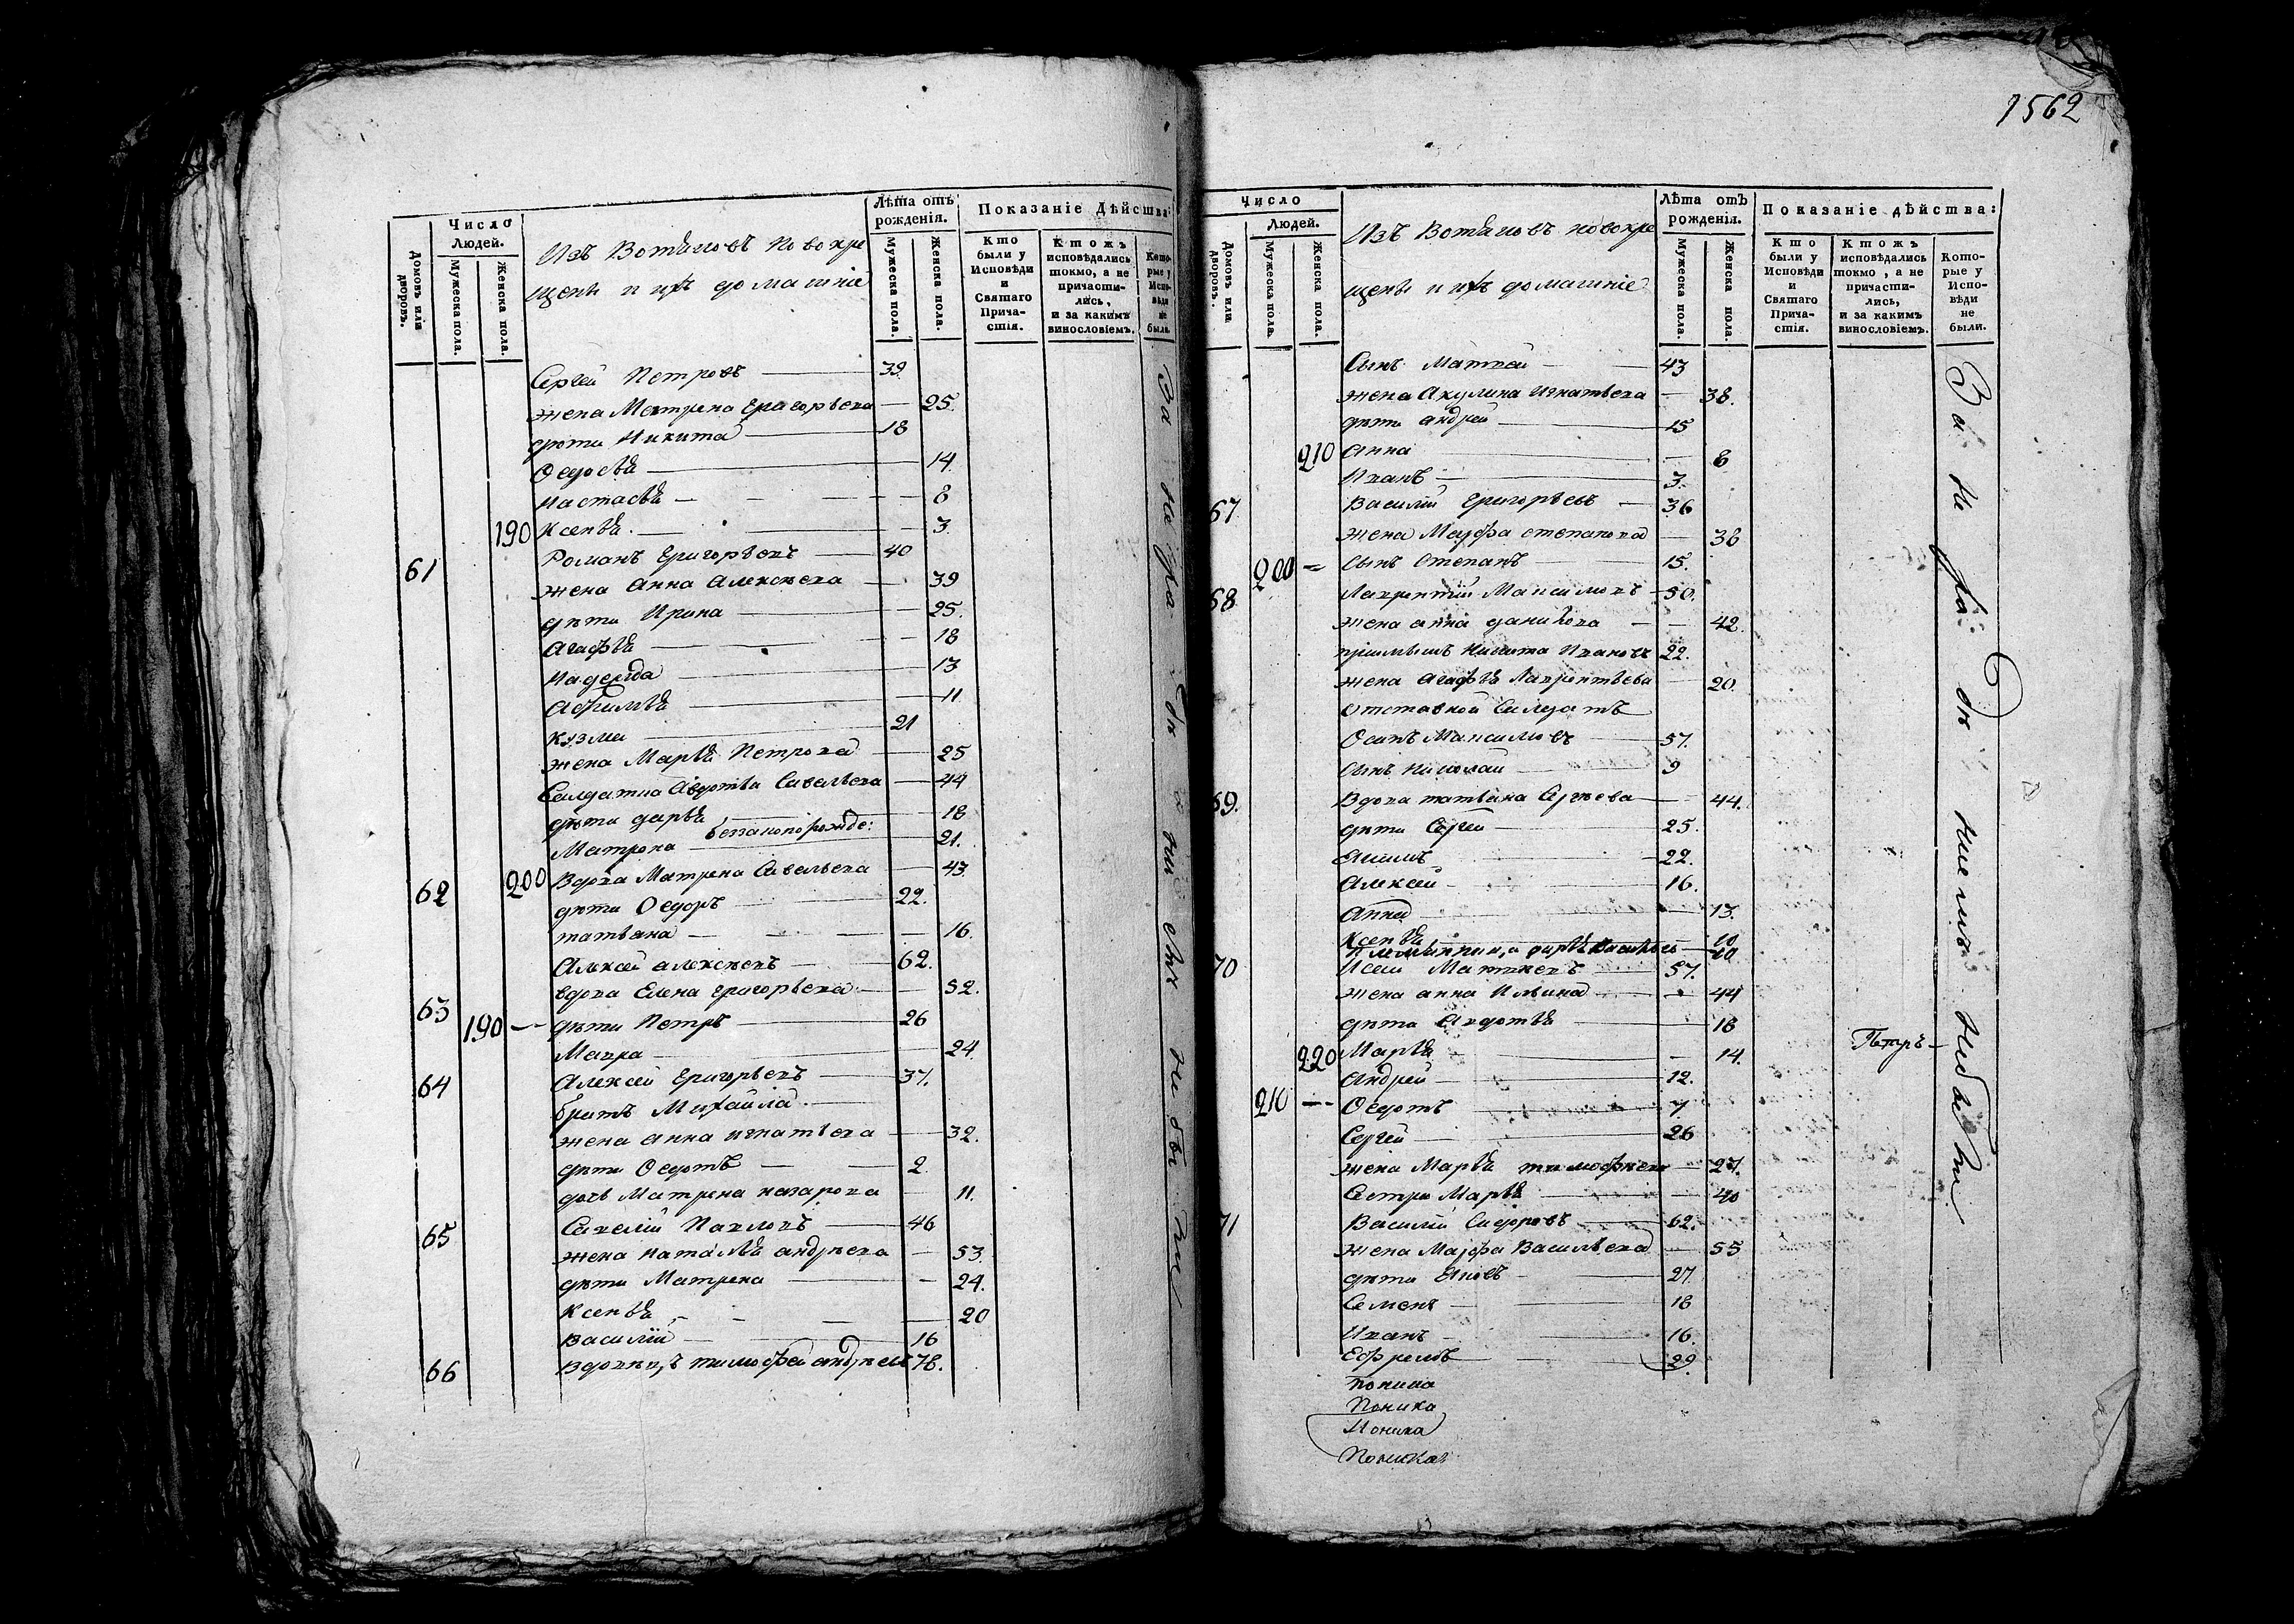 1562
Число
Людей.
Домовъ или дворовъ.
Мужеска пола.
Женска пола.
Изъ Вотяковъ новокре
щены и ихъ домашніе
Лѣта отъ
рожденія.
Мужеска пола.
Женска пола.
Показаніе дѣйства:
Кто
были у
Исповѣди
и
Святаго
Прича-
стія.
Ктожъ
исповѣдались
токмо, а не
причасти-
лись,
и за какимъ
винословіемъ.
Кото-
рые у
Испо-
вѣди
не
были.
Сергей Петровъ 39
жена Матрена Григорьева 25.
дѣти Никита 18
Ѳедосья 14
Настасья 8
190 Ксенья 3
61 Романъ Григорьевъ 40
жена Анна Алексѣева 39
дѣти Ирина 25.
Агафья 18
Надежда 13
11
Кузма 21
жена Марья Петрова 25
Салдатка Авдотья Савельева 44
дѣти Дарья 18
Матрона 21.
62 200 Вдова Матрена Савельева 43
дѣти Ѳедоръ 22.
Татьяна 16.
Алексей Алексѣевъ 62.
63 вдова Елена Григорьева 52.
190 дѣти Петръ 26
Мавра 24.
64 Алексей Григорьевъ 37.
братъ Михайла
жена Анна Игнатьева 32.
дѣти Ѳедотъ 2.
дочь Матрена Назарова 11.
65 Савелій Павловъ 46
жена Наталья Андреева 53.
дѣти Матрена 24.
Ксенья 20
Василій 16
66 Вдовецъ Тимофей Андреевъ 78.
Число
Людей.
Домовъ или дворовъ.
Мужеска пола.
Женска пола.
Изъ Вотяковъ новокре
щены и ихъ домашніе
Лѣта отъ
рожденія.
Мужеска пола.
Женска пола.
Показаніе дѣйства:
Кто
были у
Исповѣди
и
Святаго
Прича-
стія.
Ктожъ
исповѣдались
токмо, а не
причасти-
лись,
и за какимъ
винословіемъ.
Кото-
рые у
Испо-
вѣди
не
были.
Сынъ Матвей 43
жена Акулина Игнатьева 38.
дѣти Андрей 15
210 Анна 8
Иванъ 3.
67 Василій Григорьевъ 36
жена Марфа Степанова 38
200 Сынъ Степанъ 15.
68 Лаврентій Максимовъ 50.
жена Анна Данилова 42.
пріимышъ Никита Ивановъ 22.
жена Агафья Лаврентьева 20.
Отставной Салдатъ
Осипъ Максимовъ 57.
Сынъ Николай 9
69. Вдова Татьяна Сргѣева 44.
дѣти Сергей 25.
Акимъ 22.
Алексей 16.
Анна 13.
Ксенья 10
Племянница Дарья Васильева 20
70 Исай Матвѣевъ 57.
жена Анна Ильина 44
дѣти Авдотья 18
220 Марья 14.
Андрей 12.
210 Ѳедотъ 7.
Сергей 26
жена Марья Тимофѣева 27.
Сестра Марья 40
71 Василій Сидоровъ 62.
жена Марфа Васильева 55
дѣти Яковъ 27
Семенъ 18
Иванъ 16.
Ефремъ 29.
Поника
Поника
Поника
Поника
Петръ
За не ра дѣ ніемъ небыли